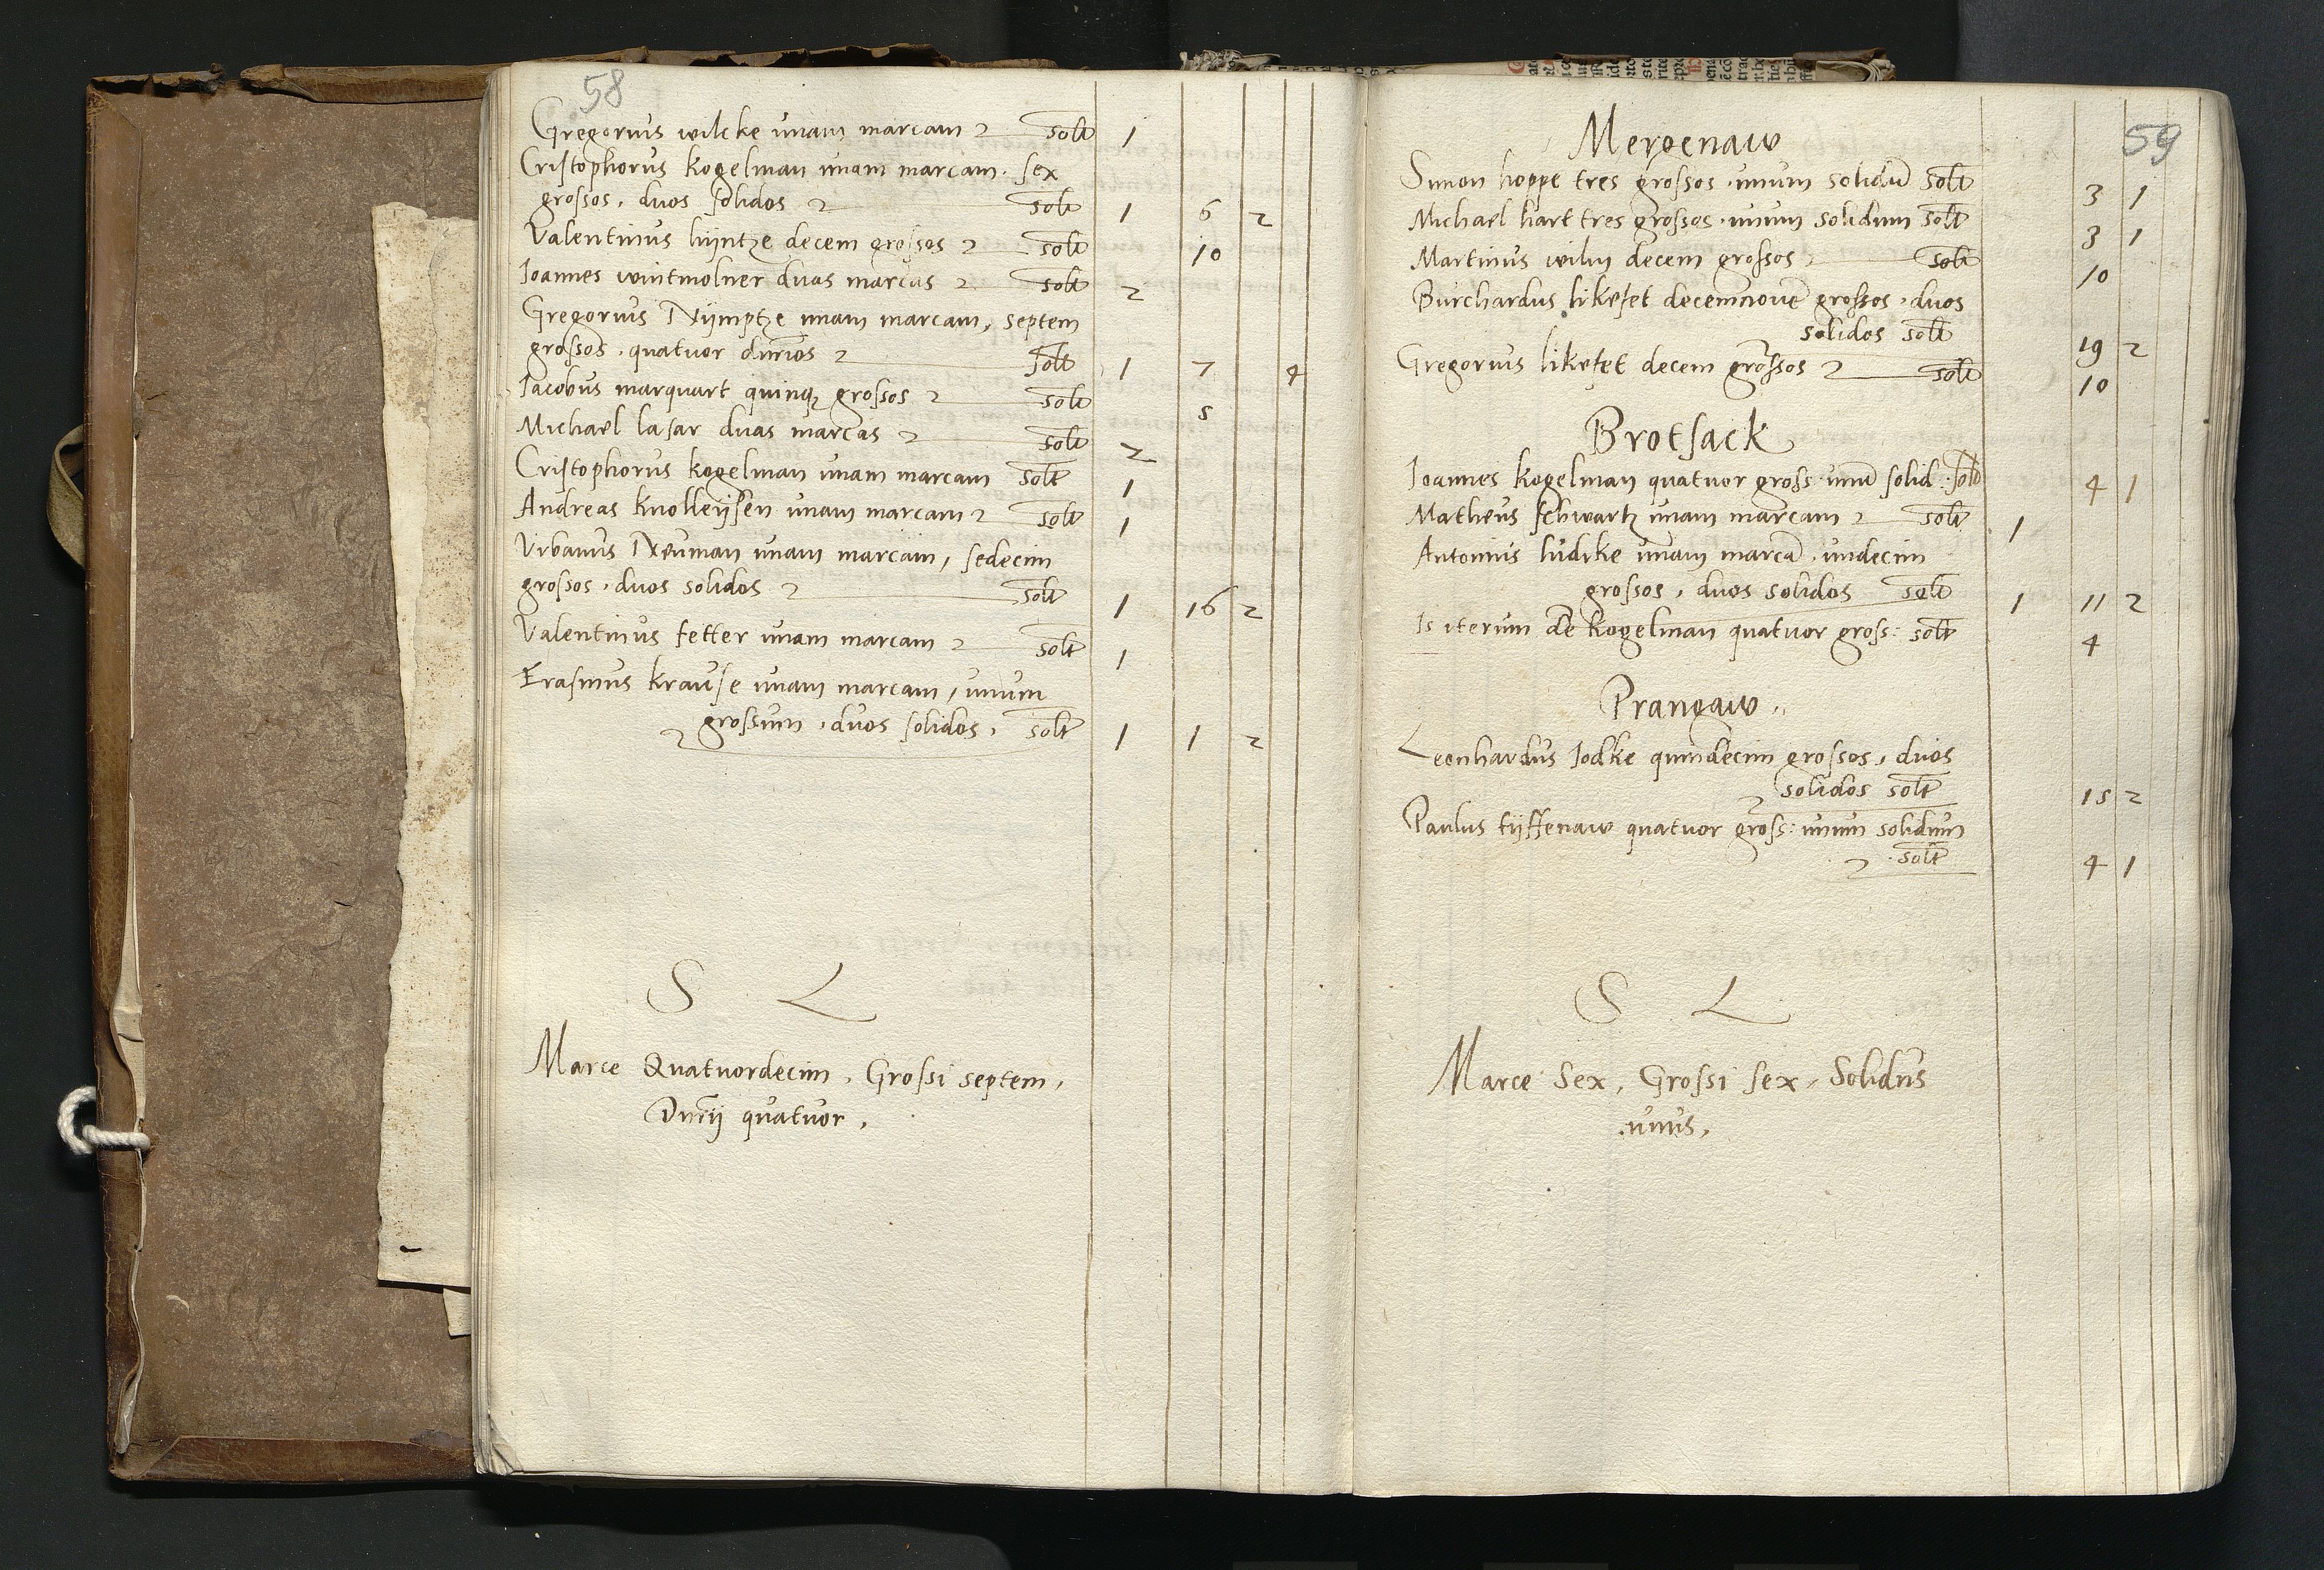 58
Gregorius wilcke unam marcam solt 1
Cristophorus kogelman unam marcam. sex
grossos, duos solidos solt 1 6 2
Valentinus hijntze decem grossos solt 10
Ioannes wintmolner duas marcas solt 2
Gregorius Nijmptze unam marcam, septem
grossos, quatuor dnrios solt 1 7 4
Iacobus marquart quinqꝫ grossos solt 5
Michael lasar duas marcas solt 2
Cristophorus kogelman unam marcam solt 1
Andreas knolleijsen unam marcam solt 1
Vrbanus Neuman unam marcam, sedecim
grossos, duos solidos solt 1 16 2
Valentinus fetter unam marcam solt 1
Erasmus krause unam marcam, unum
grossum, duos solidos, solt 1 1 2
S L
Marce Quatuordecim, Grossi septem,
Dnrij quatuor,
59
Mergenaw
Simon hoppe tres grossos, unum solidū solt 3 1
Michael hart tres grossos, unum solidum solt 3 1
Martinus wilm decem grossos solt 10
Burchardus likefet decemnovē grossos, duos
solidos solt 19 2
Gregorius likefet decem grossos solt 10
Brotsack
Ioannes kogelman quatuor gross: unū solid: solt 4 1
Matheus schwartz unam marcam solt 1
Antonius ludike unam marcā, undecim
grossos, duos solidos solt 1 11 2
Is iterum de kogelman quatuor gross: solt 4
Prangaw
Leonhardus Iodke quindecim grossos, duos
solidos solt 15 2
Paulus tijffenaw quatuor gross: unum solidum
solt 4 1
S L
Marce Sex, Grossi sex, Solidus
unus,